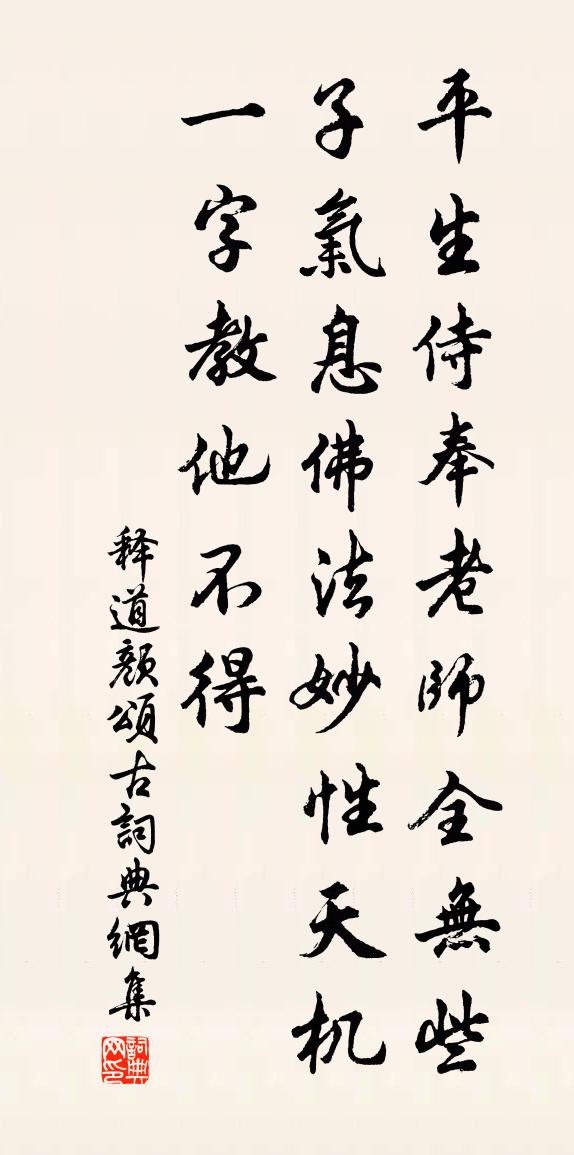 平生侍奉老師全無些
子氣息佛法妙性天机
一字教他不得
释道颜頌古詞典網集
詞典网印